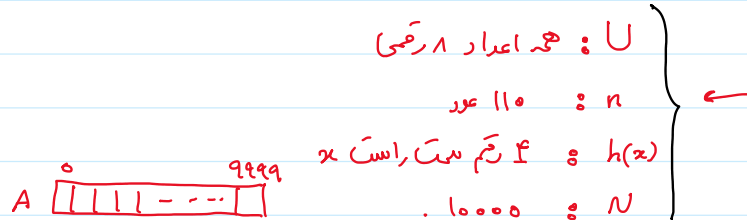 U : همه اعداد ۸ رقمی
n : ۱۱۰ عدد
h(x) : ۴ رقم سمت راست x
N : ۱۰۰۰۰
۰ ۹۹۹۹
A